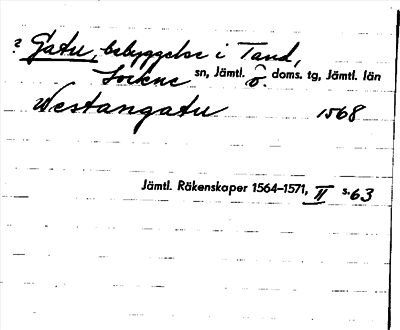 ? Gatu, bebyggelse i Tand,
Lockne sn, Jämtl. ö. doms. tg, Jämtl. län
Westangatu 1568
Jämtl. Räkenskaper 1564–1571, II s. 63